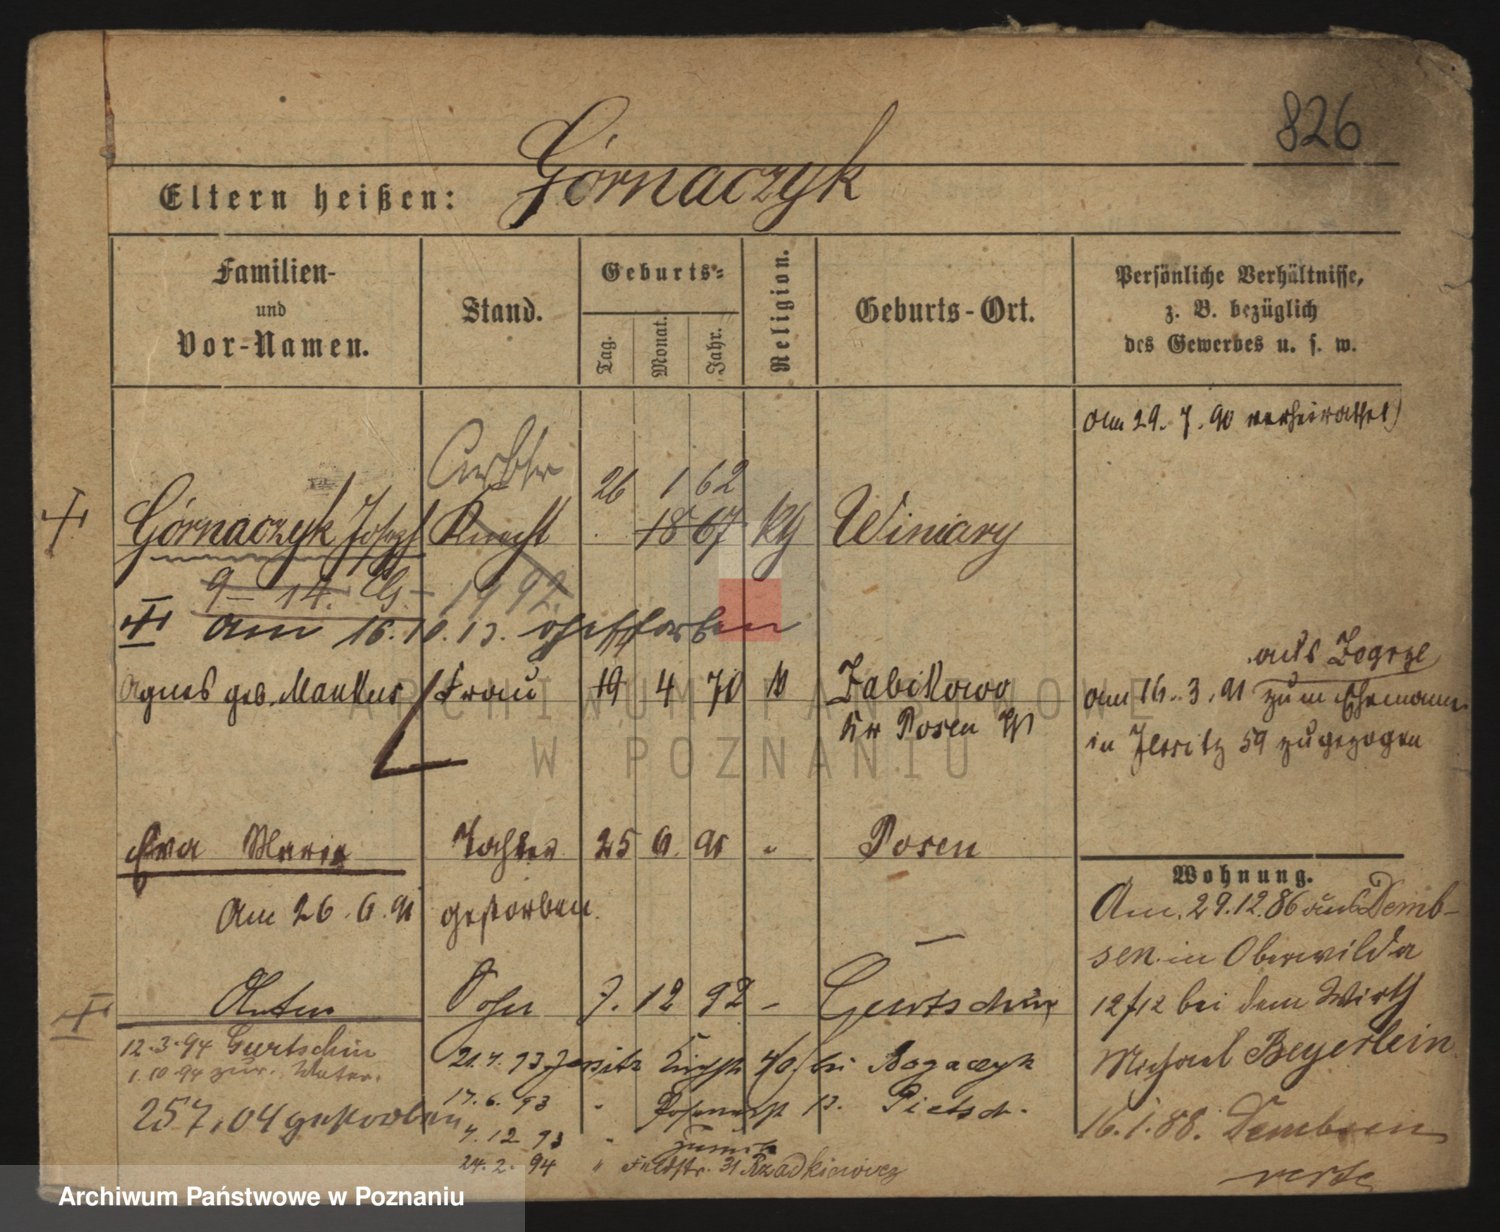 826
Eltern heißen: Górnaczyk
Familien- und Vor-Namen.
Stand.
Geburts=
Tag.
Monat.
Jahr.
Religion.
Geburts-Ort.
Persönliche Verhältnisse,
z. B. bezüglich
des Gewerbes u. s. w.
am 29. 7. 90 verheirathet
26 1 62
Górnaczyk Josef Knecht 18 67 Winiary
9 - 14.
am 16.10.13.
aus Zegrze
Agnes geb. Frau 19 4 70 Zabikowo
Kr Posen
am 16. 3. 91 zum Ehemann
in Jersitz 59 zugezogen
ARCHIWUM PAŃSTWOWE
W POZNANIU
Eva Maria Tochter 25 6. 91 " Posen
am 26. 6. 91 gestorben.
Wohnung.
Am. 29.12.86 aus Demb-
sen in Oberwilda
12/12 bei dem Wirth
Michael Beyerlein
16.1.88. Dembsen
verte
Anton Sohn 7. 12 92 - Gurtschin
12.3.94 Gurtschin
1.10.94 zur.
257.04 gestorben
21.4.93 Jersitz 40. bei Bogaczyk
17.6.93 " 13. Pietsch.
4.12.93 "
24.2.94 " Feldstr. 31 Rzadkiewicz
Archiwum Państwowe w Poznaniu